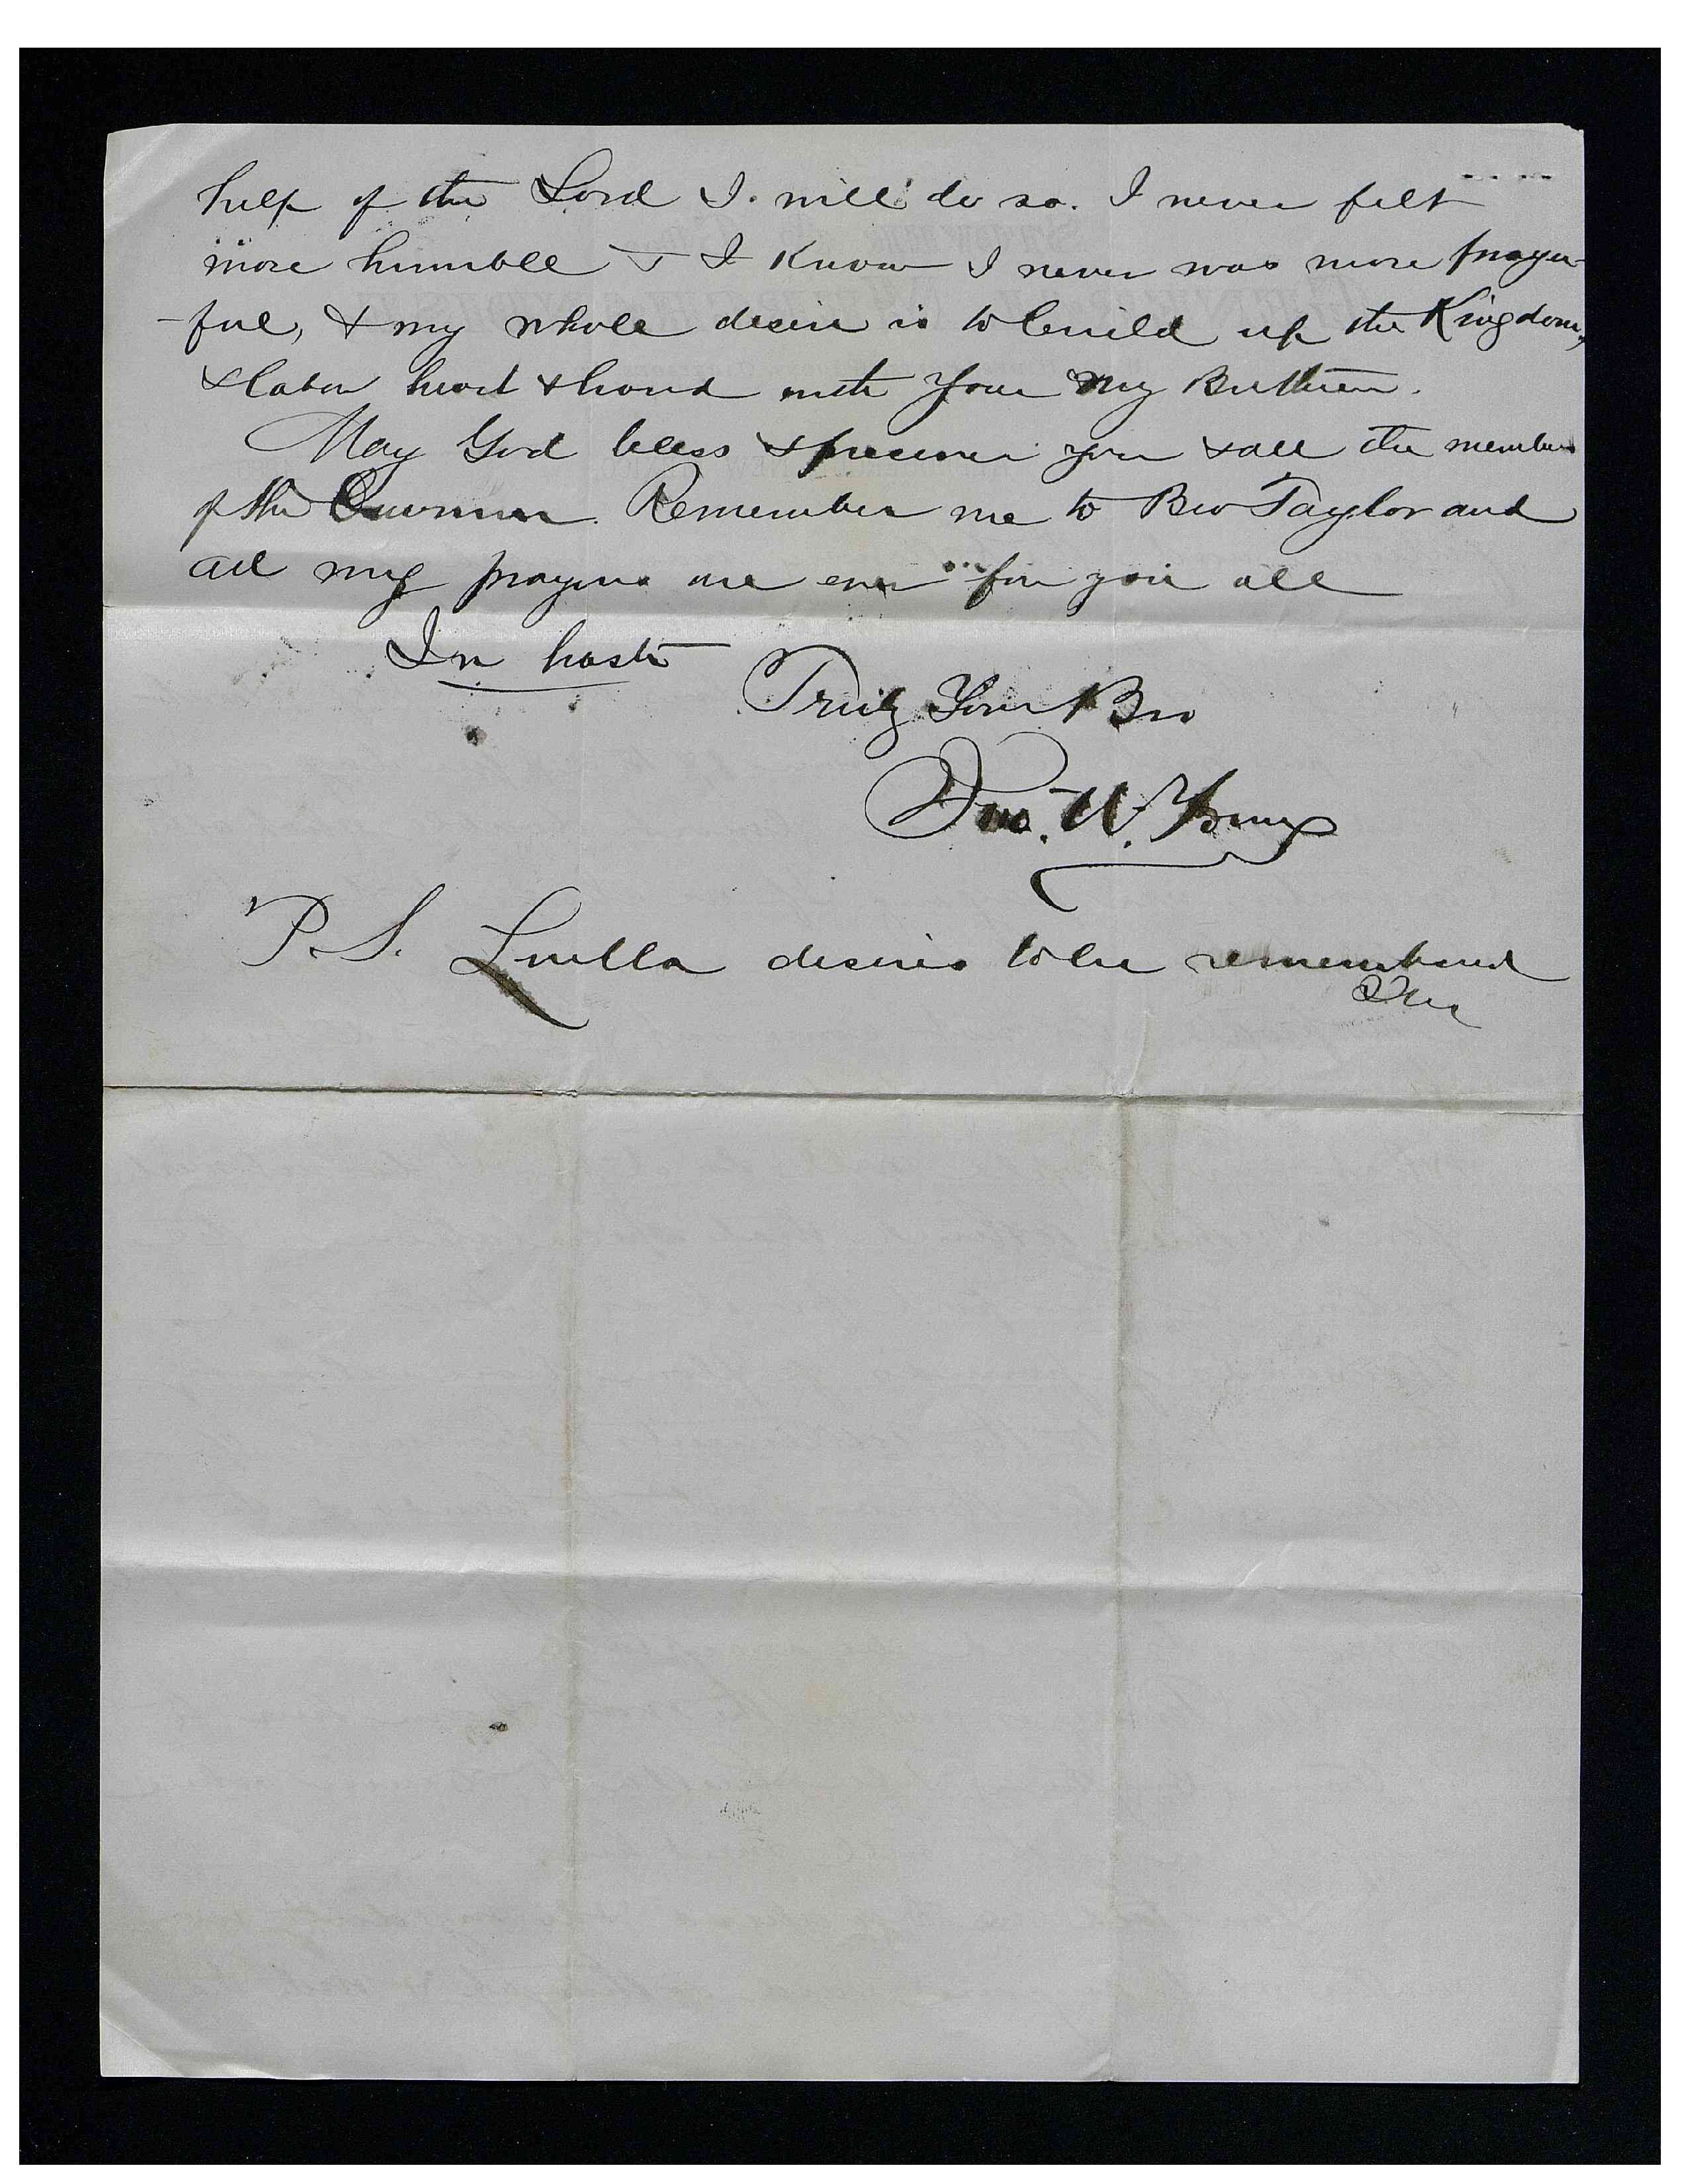 help of the Lord I will do so. I never felt
more humble & I know I never was more prayer-
-ful, & my whole desire is to build up the Kingdom,
& labor heart & hand with you my Brethren.
May God bless & preserve you & all the members
of the Quorum. Remember me to Bro Taylor and
all my prayers are ever for you all
In haste
Truly Your Bro
Jno. W. Young
P.S. Luella desires to be remembered